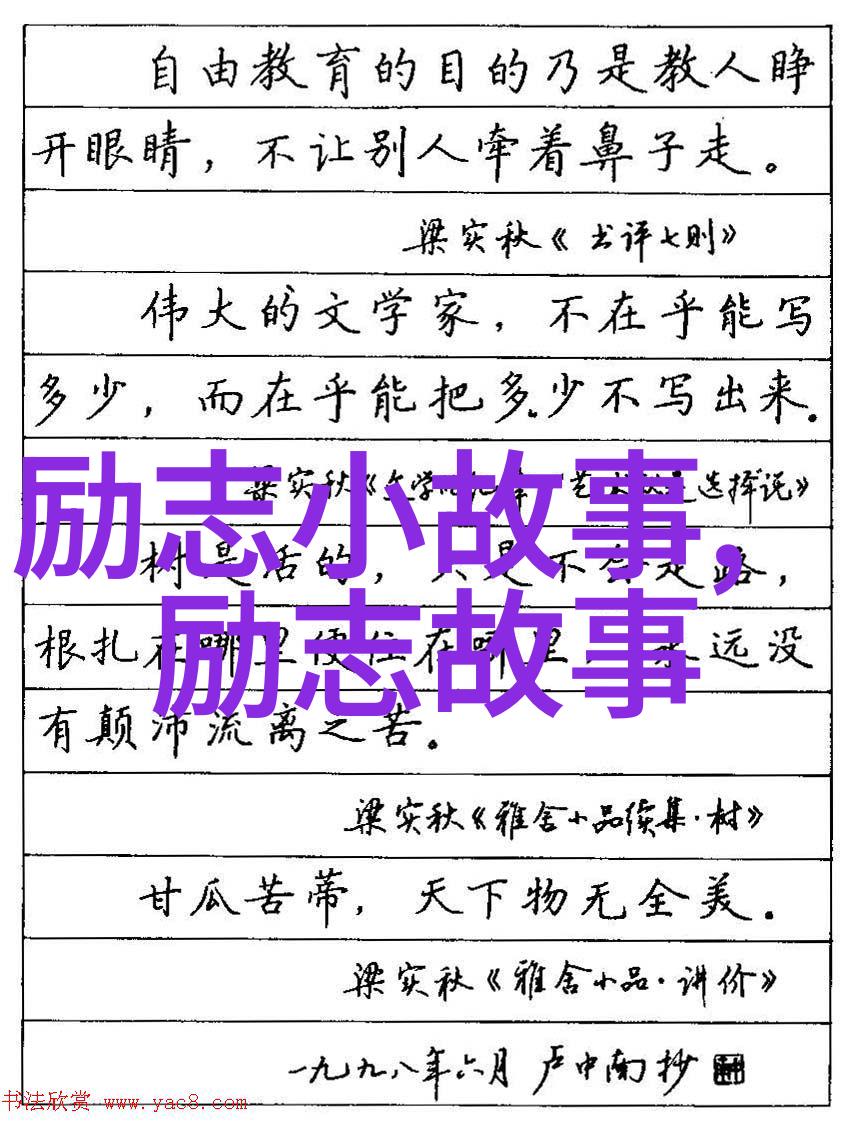 自由教育的目的乃是教人睁
开眼睛，不让别人牵着鼻子走。
梁实秋《书评七则》
伟大的文学家，不在乎能写
多少，而在乎能把多少不写出来。
梁实秋《文学 选择说》
励志小故事，
树是活的，只是不会走路，
励志故事
根扎在哪里便住在哪里 永远没
有颠沛流离之苦。
梁实秋《雅舍小品续集·树》
甘瓜苦蒂，天下物无全美。
梁实秋《雅舍小品·讲价》
一九九八年六月 卢中南抄
书法欣赏 www.yac8.com